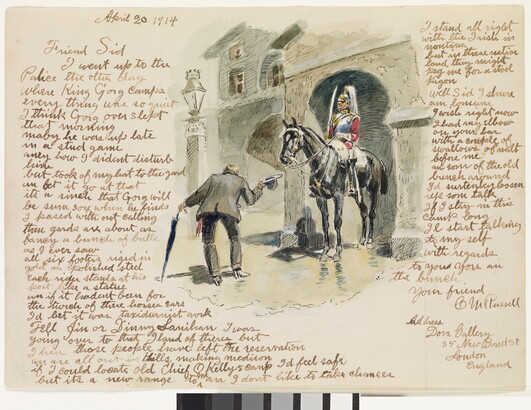 April 20 1914
Friend Sid
I went up to the
Palice the other day
where King Gorg camps
every thing was so quiet
I think Gorg over slept
that morning
maby he was up late
in a stud game
aney how I dident disturb
him
but took of my hat to the gard
an let it go at that
its a sinch that Gorg will
be sure sore when he finds
I passed with out calling
these gards are about as
fancy a bunch of bulls
as I ever saw
all six footers riged in
gold an polished steel
each rider stands at his
post like a statue
an if it hadent been for
the twich of there horses ears
I'd bet it was taxidermist work
Tell Jim or Dinny Sanihan I was
going over to that I land of theirs but
I hear those people have left the reservation
an are all out in the hills making medison
if I could locate old Chief O Kellys camp I'd feel safe
but its a new range to me an I dont like to take chances
I stand all right
with the Irish in
montana
but in there native
land they might
peg me for a stool
pigon
Well Sid I shure
am lonsum
I wish right now
I had my elbow
on your bar
with a couple of
swallows of milk
before me
an some of the old
bunch around
I'd surtenly loosen
up some talk
if I stay in this
camp long
I'l start talking
to my self
with regards
to your yore an
the bunch
Your friend
C M Russell
Address
Dore Gallery
35 New Bond St
London
England